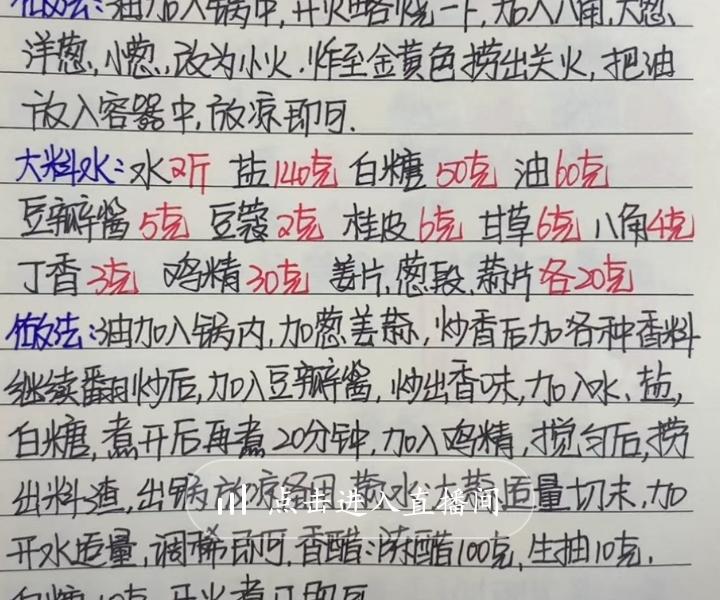 做法:油加入锅中,开火略烧一下,加入八角,大葱、
洋葱,小葱,改为小火.炸至金黄色捞出关火,把油
放入容器中,放凉即可.
大料水:水2斤 盐140克 白糖50克 油60克
豆瓣酱5克 豆蔻2克 桂皮6克 甘草6克 八角4克
丁香3克 鸡精30克 姜片,葱段,蒜片各20克
做法:油加入锅内,加葱姜蒜,炒香后加各种香料
继续翻炒后,加入豆瓣酱,炒出香味,加入水、盐,
白糖,煮开后再煮20分钟,加入鸡精,搅匀后,捞
出料渣,出锅放凉备用.蒜水:大蒜适量切末,加
点击进入直播间
开水适量,调稀即可,香醋:陈醋100克,生抽10克.
白糖10克,开火煮开即可